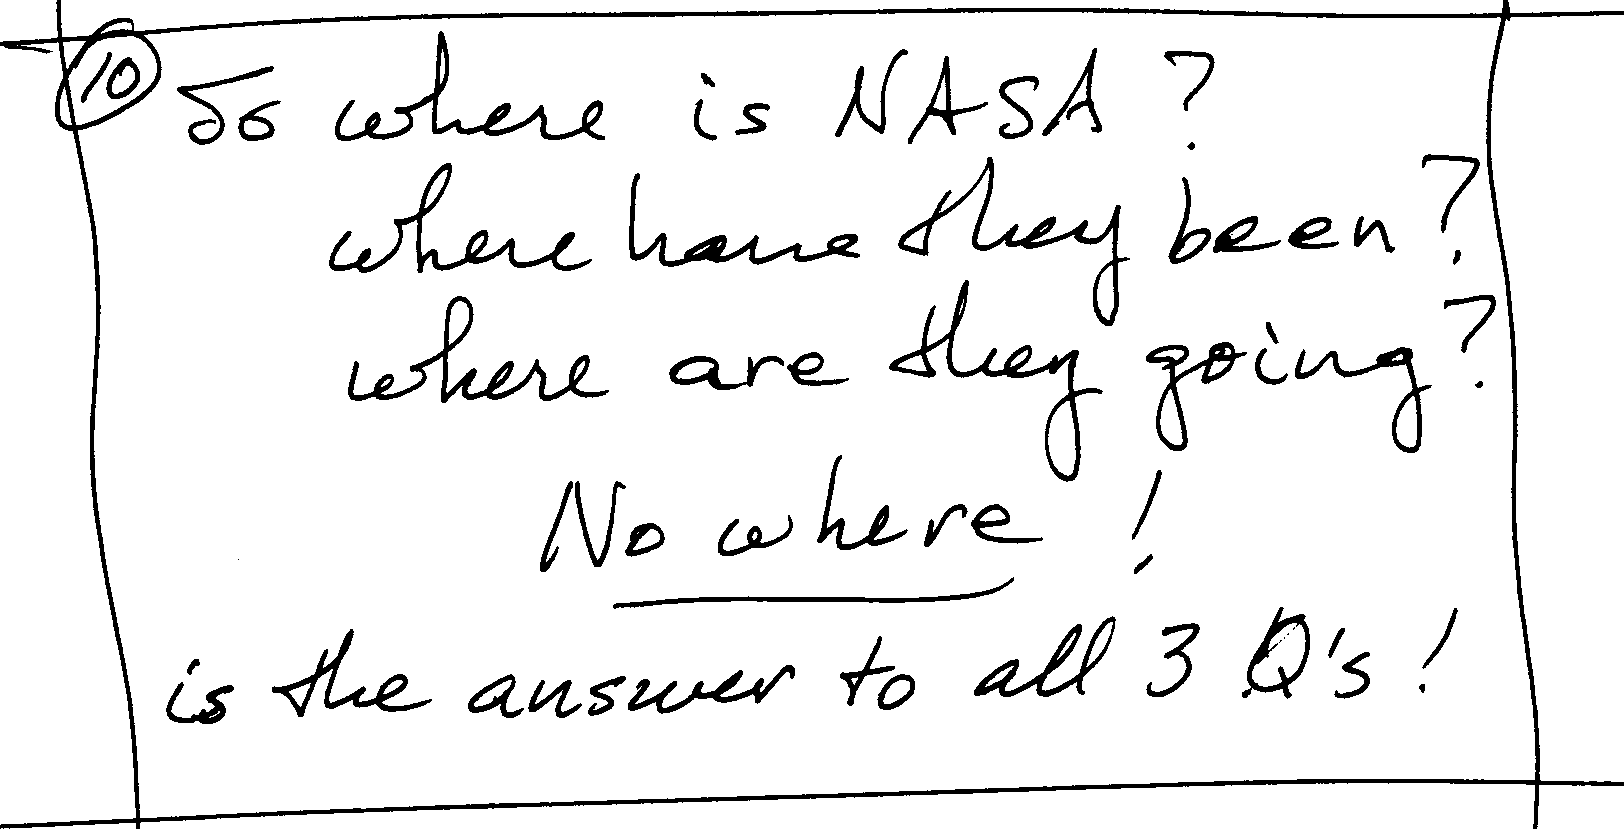 10 So where is NASA?
where have they been?
where are they going?
No where!
is the answer to all 3 Q's!